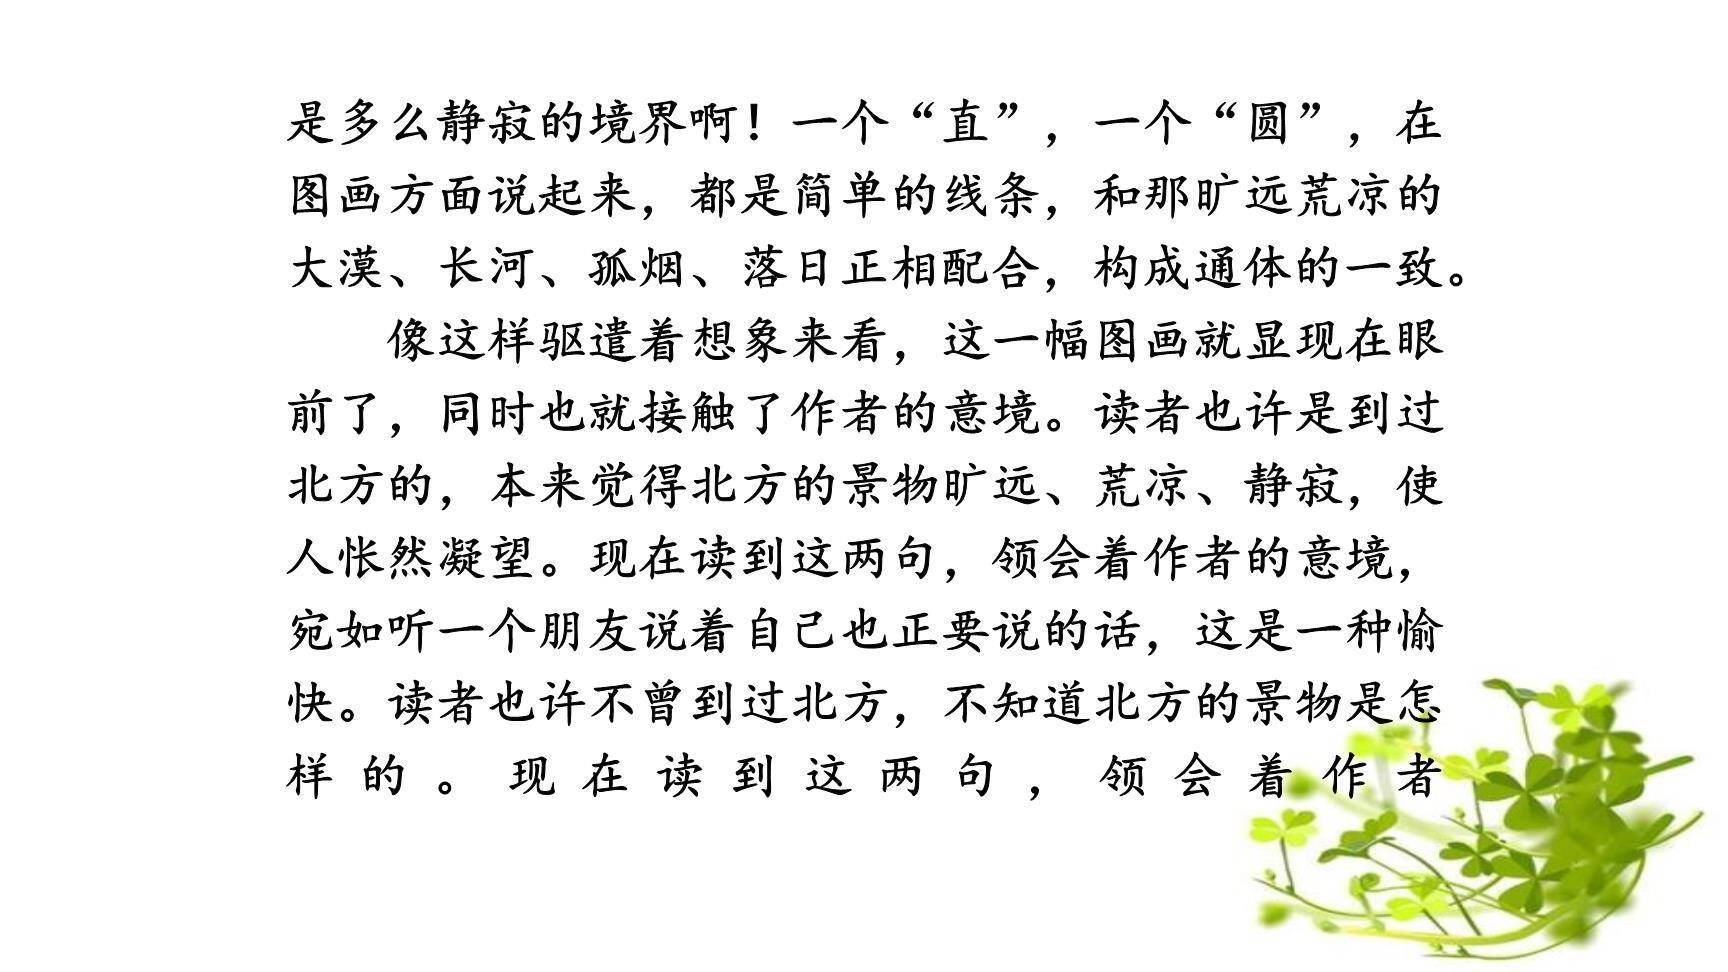 是多么静寂的境界啊！一个“直”，一个“圆”，在
图画方面说起来，都是简单的线条，和那旷远荒凉的
大漠、长河、孤烟、落日正相配合，构成通体的一致。
像这样驱遣着想象来看，这一幅图画就显现在眼
前了，同时也就接触了作者的意境。读者也许是到过
北方的，本来觉得北方的景物旷远、荒凉、静寂，使
人怅然凝望。现在读到这两句，领会着作者的意境，
宛如听一个朋友说着自己也正要说的话，这是一种愉
快。读者也许不曾到过北方，不知道北方的景物是怎
样的。现在读到这两句，领会着作者